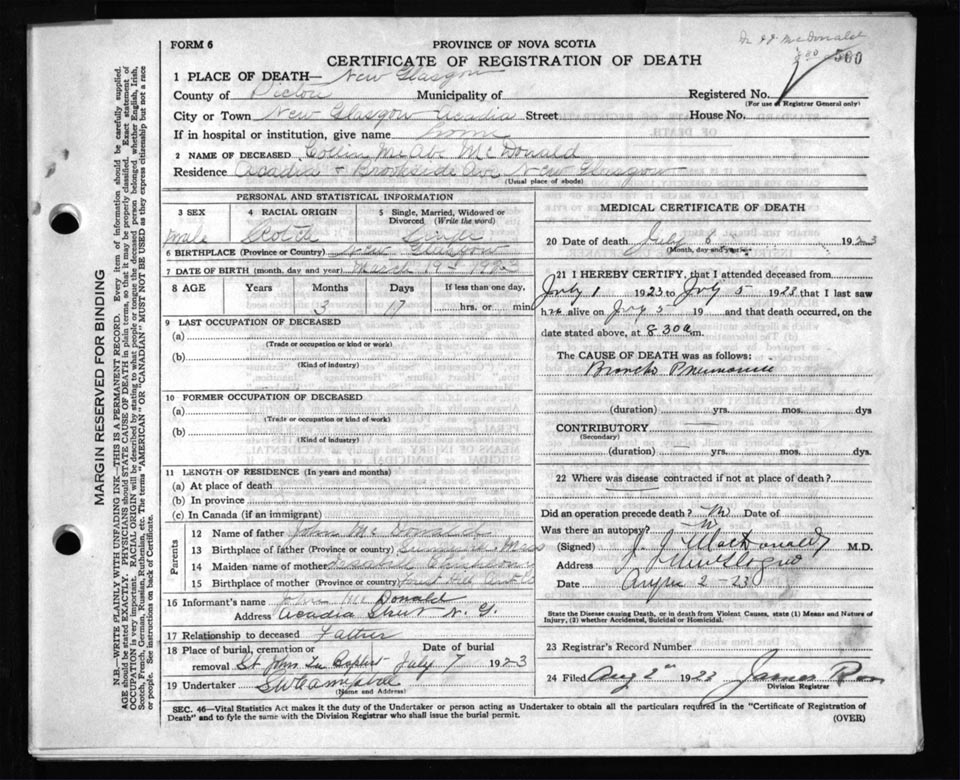 Dr J J McDonald
FORM 6
PROVINCE OF NOVA SCOTIA
CERTIFICATE OF REGISTRATION OF DEATH
500
1 PLACE OF DEATH— New Glasgow
County of Pictou Municipality of Registered No.
(For use of Registrar General only)
City or Town New Glasgow Acadia Street House No.
If in hospital or institution, give name home
2 NAME OF DECEASED Collin McDonald
Residence Acadia + Brookside Ave New Glasgow
(Usual place of abode)
PERSONAL AND STATISTICAL INFORMATION
3 SEX 4 RACIAL ORIGIN 5 Single, Married, Widowed or Divorced (Write the word)
male Scotch Single
6 BIRTHPLACE (Province or Country) New Glasgow
7 DATE OF BIRTH (month, day and year) March 19th 1923
8 AGE Years Months Days If less than one day,
3 17 hrs. or min.
9 LAST OCCUPATION OF DECEASED
(a)
(Trade or occupation or kind of work)
(b)
(Kind of industry)
10 FORMER OCCUPATION OF DECEASED
(a)
(Trade or occupation or kind of work)
(b)
(Kind of industry)
11 LENGTH OF RESIDENCE (In years and months)
(a) At place of death
(b) In province
(c) In Canada (if an immigrant)
Parents
12 Name of father John McDonald
13 Birthplace of father (Province or country) Mass
14 Maiden name of mother
15 Birthplace of mother (Province or country) Forest Hill
16 Informant's name John McDonald
Address Acadia Street N. G.
17 Relationship to deceased Father
18 Place of burial, cremation or removal St John the Baptist Date of burial July 7 1923
19 Undertaker S W Campbell
(Name and Address)
MEDICAL CERTIFICATE OF DEATH
20 Date of death July 6 1923
(Month, day and year)
21 I HEREBY CERTIFY, that I attended deceased from
July 1 1923 to July 5 1923 that I last saw
h im alive on July 5 19 and that death occurred, on the
date stated above, at 8 30 a m.
The CAUSE OF DEATH was as follows:
Broncho Pneumonia
(duration) yrs. mos. dys
CONTRIBUTORY
(Secondary)
(duration) yrs. mos. dys.
22 Where was disease contracted if not at place of death?
Did an operation precede death? No Date of
Was there an autopsy? No
(Signed) J. J. MacDonald M.D.
Address New Glasgow
Date 2-23
State the Disease causing Death, or in death from Violent Causes, state (1) Means and Nature of
Injury, (2) whether Accidental, Suicidal or Homicidal.
23 Registrar's Record Number
24 Filed Aug 2nd 1923 James Ross
Division Registrar
SEC. 46—Vital Statistics Act makes it the duty of the Undertaker or person acting as Undertaker to obtain all the particulars required in the "Certificate of Registration of
Death" and to fyle the same with the Division Registrar who shall issue the burial permit.
(OVER)
MARGIN RESERVED FOR BINDING
N.B.—WRITE PLAINLY WITH UNFADING INK—THIS IS A PERMANENT RECORD. Every item of information should be carefully supplied.
AGE should be stated EXACTLY. PHYSICIANS should STATE CAUSE OF DEATH in plain terms, so that it may be properly classified. Exact statement of
OCCUPATION is very important. RACIAL ORIGIN will be described by stating to what people or tongue the deceased person belonged whether English, Irish,
Scotch, French, German, Russian, Ruthenian, etc. The terms "AMERICAN" OR "CANADIAN" MUST NOT BE USED as they express citizenship but not a race
or people. See instructions on back of Certificate.